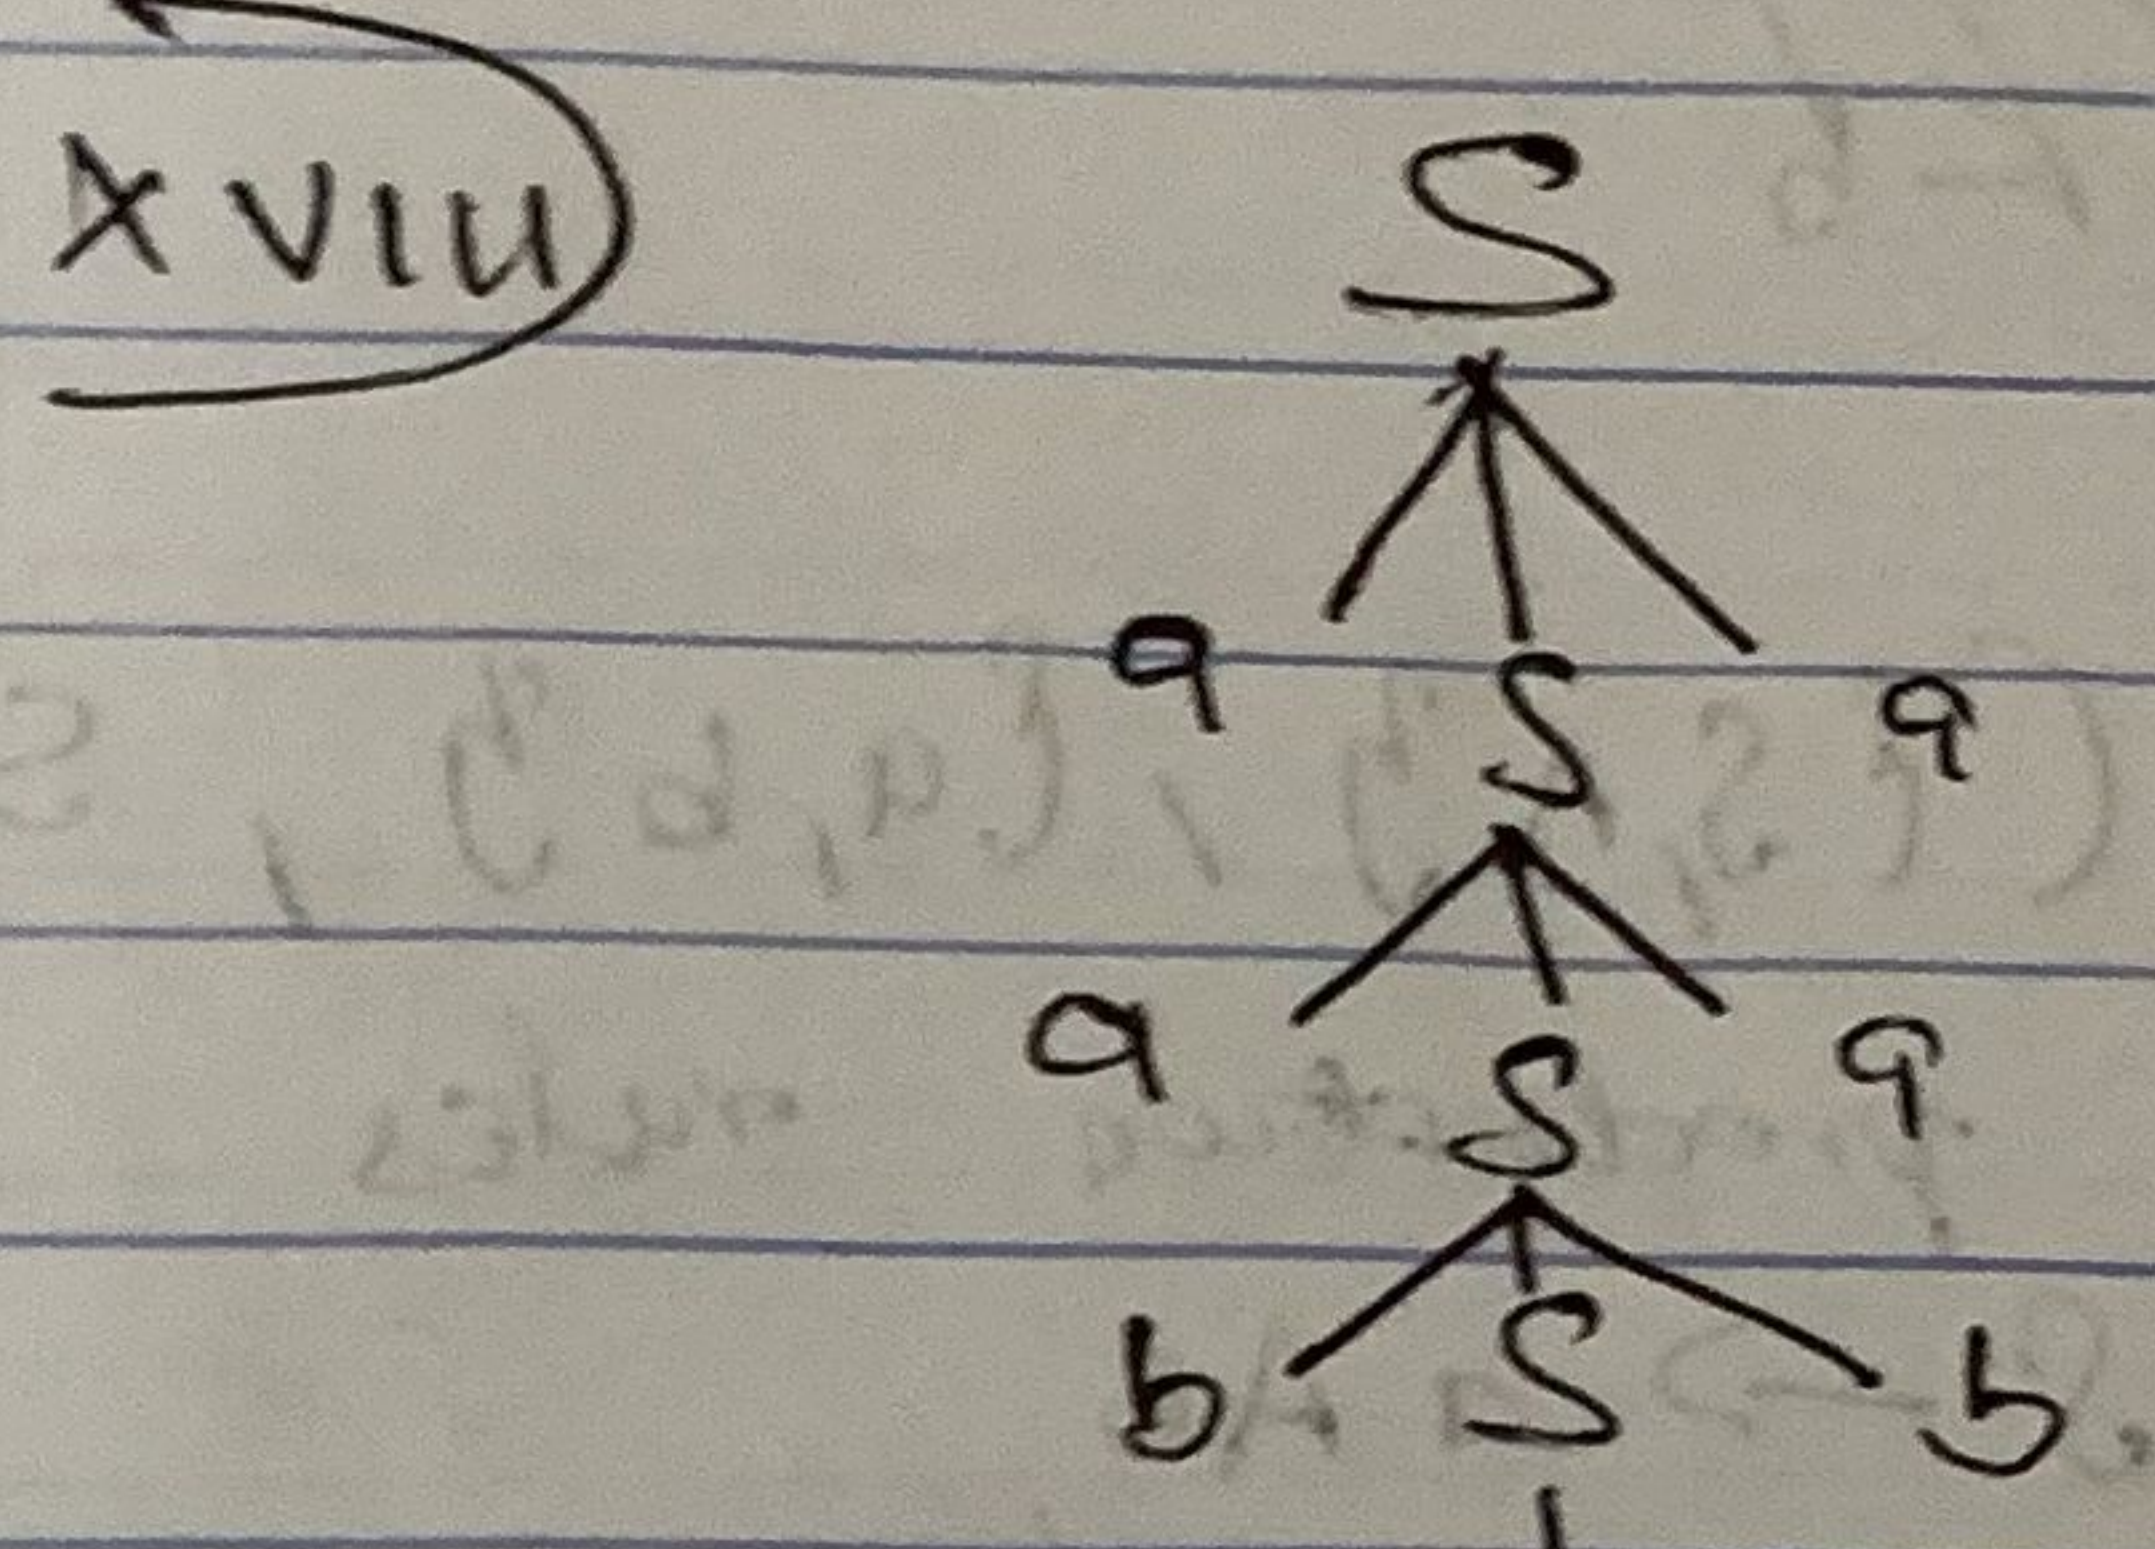 XVIII S
a S a
a S a
b S b